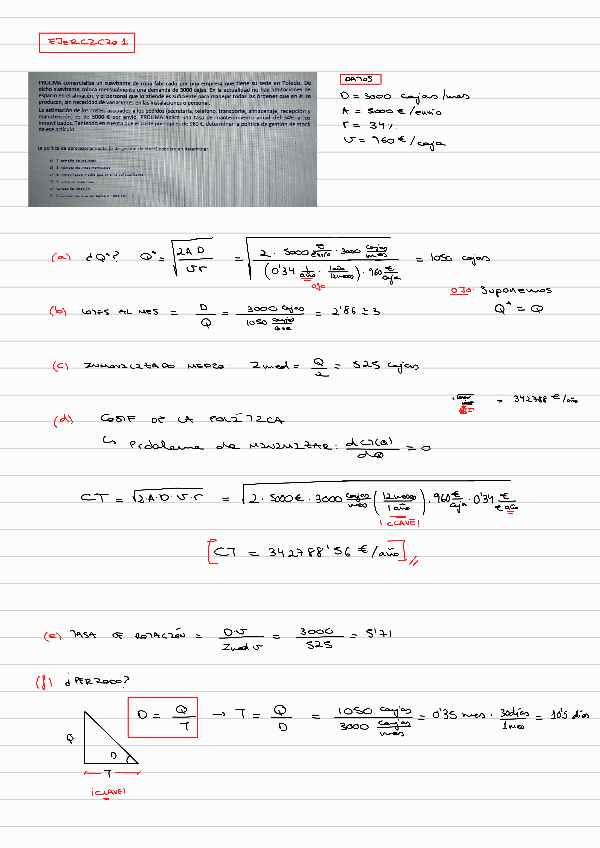 EJERCICIO 1
PROLIMA comercializa un suavizante de ropa fabricado por una empresa que tiene su sede en Toledo. De
dicho suavizante coloca mensualmente una demanda de 3000 cajas. En la actualidad no hay limitaciones de
espacio en el almacén, y el personal que lo atiende es suficiente para manejar todas las órdenes que en él se
produzcan, sin necesidad de variaciones en las instalaciones o personal.
La estimación de los costes asociados a los pedidos (secretaría, teléfono, transporte, almacenaje, recepción y
manutención) es de 5000 € por envío. PROLIMA aplica una tasa de mantenimiento anual del 34% a los
inmovilizados. Teniendo en cuenta que el coste por caja es de 960 €, determinar la política de gestión de stock
de ese artículo
DATOS
D = 3000 cajas/mes
A = 5000 €/envío
r = 34%
v = 960 €/caja
(a) ¿Q*? Q* = √(2AD / vr) = √(2 · 5000 €/envío · 3000 cajas/mes / (0'34 1/año · 1año/12meses) · 960 €/caja) = 1050 cajas
OJO
OJO: Suponemos
Q* = Q
(b) LOTES AL MES = D/Q = 3000 cajas / 1050 cajas/lote = 2'86 ≅ 3
(c) INMOVILIZADO MEDIO: Imed = Q/2 = 525 cajas
= 342788 €/año
(d) COSTE DE LA POLÍTICA
↳ Problema de MINIMIZAR: dCT(Q)/dQ = 0
CT = √2·A·D·v·r = √2 · 5000 € · 3000 cajas/mes (12 meses/1 año) · 960 €/caja · 0'34 €/€ año
¡CLAVE!
[CT = 342788'56 €/año]
(e) TASA DE ROTACIÓN = D·v / Imed·v = 3000/525 = 5'71
(f) ¿PERIODO?
D = Q/T → T = Q/D = 1050 cajas / 3000 cajas/mes = 0'35 mes · 30días/1mes = 10'5 días
Q
D
T
¡CLAVE!